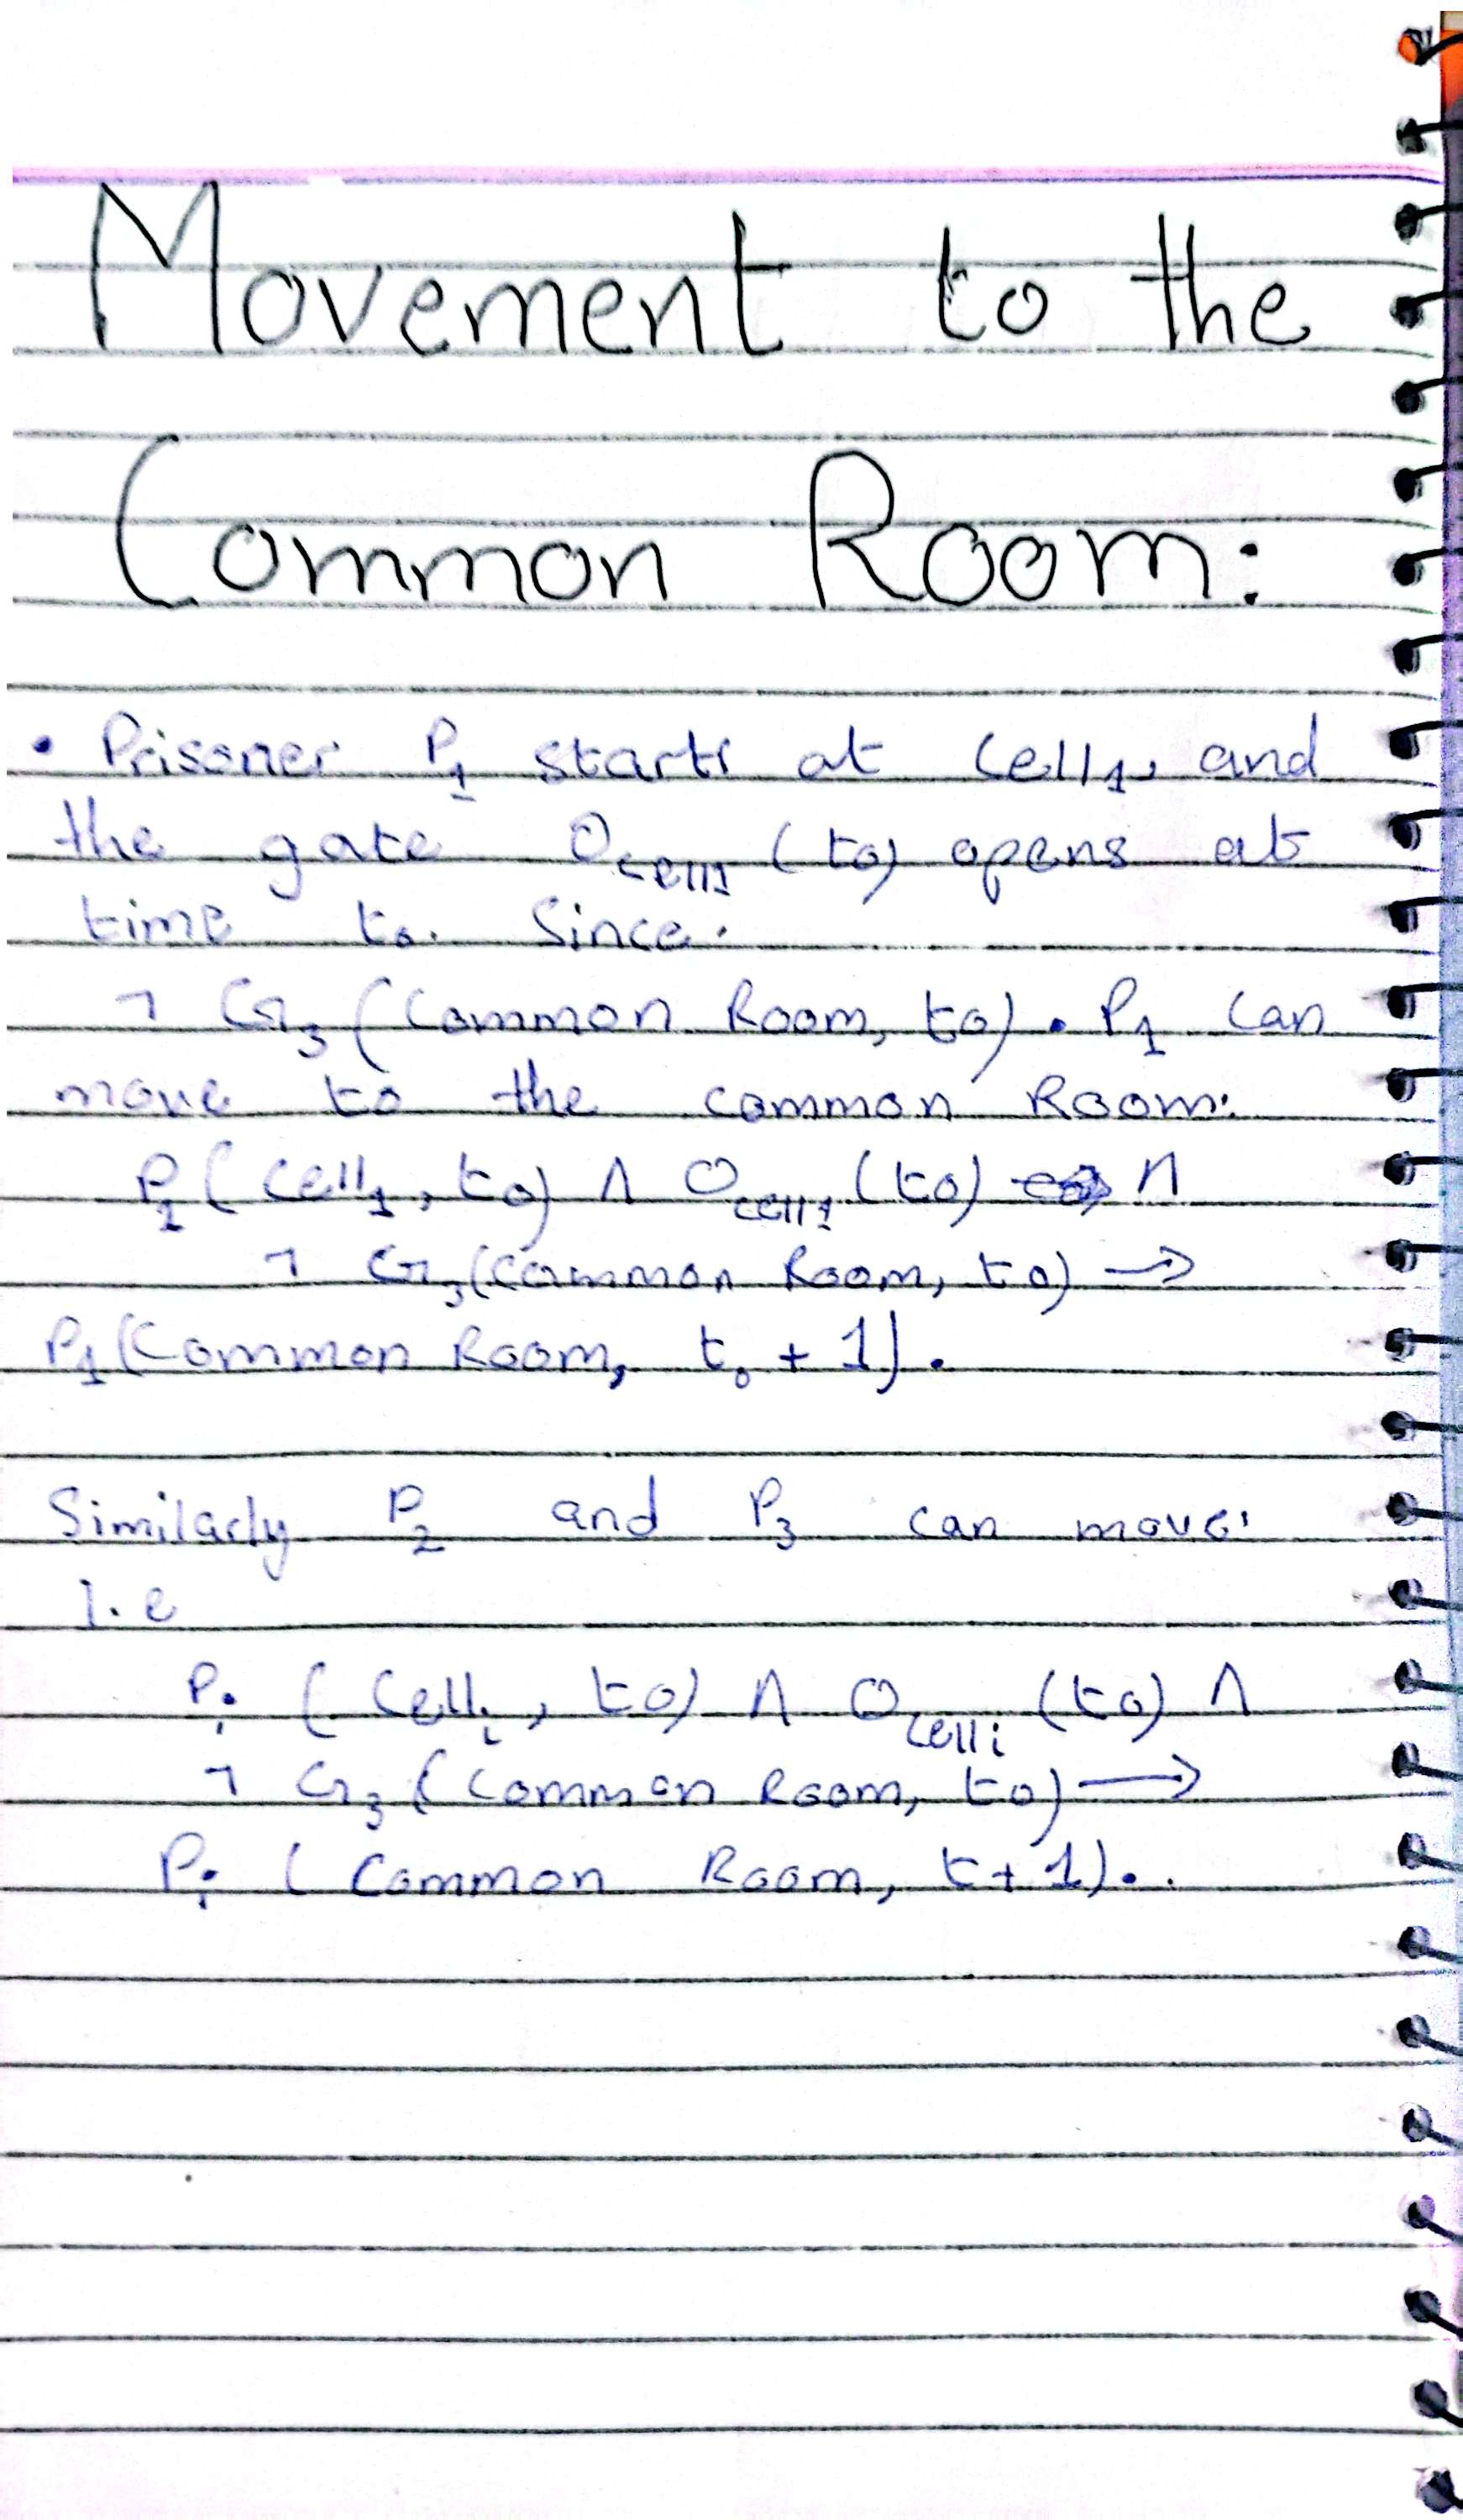 Movement to the
Common Room:
• Prisoner P₁ starts at Cell₁, and
the gate O_cell1 (t0) opens at
time t0. Since:
¬ G₃ (Common Room, t0). P₁ can
move to the common Room:
P₁ ( Cell₁, t0) ∧ O_cell1 (t0) ∧
¬ G₃(Common Room, t0) →
P₁(Common Room, t₀ + 1).
Similarly P₂ and P₃ can move:
I.e
Pᵢ ( Cellᵢ, t0) ∧ O_celli (t0) ∧
¬ G₃ (Common Room, t0) →
Pᵢ ( Common Room, t+1)..